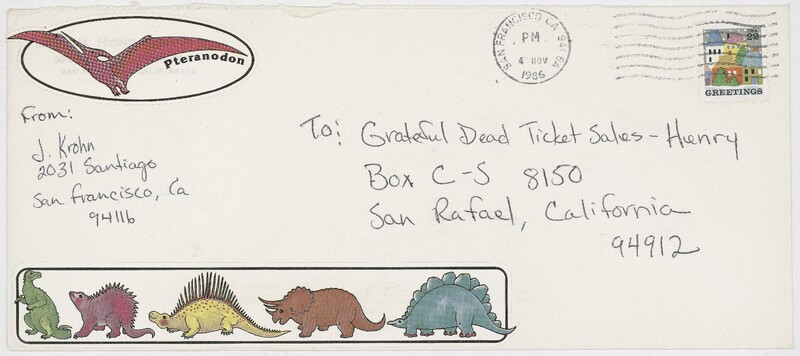 Pteranodon
From:
J. Krohn
2031 Santiago
San Francisco, Ca
94116
SAN FRANCISCO CA 941
PM
4 NOV
1986
USA 22
GREETINGS
To: Grateful Dead Ticket Sales - Henry
Box C-S 8150
San Rafael, California
94912